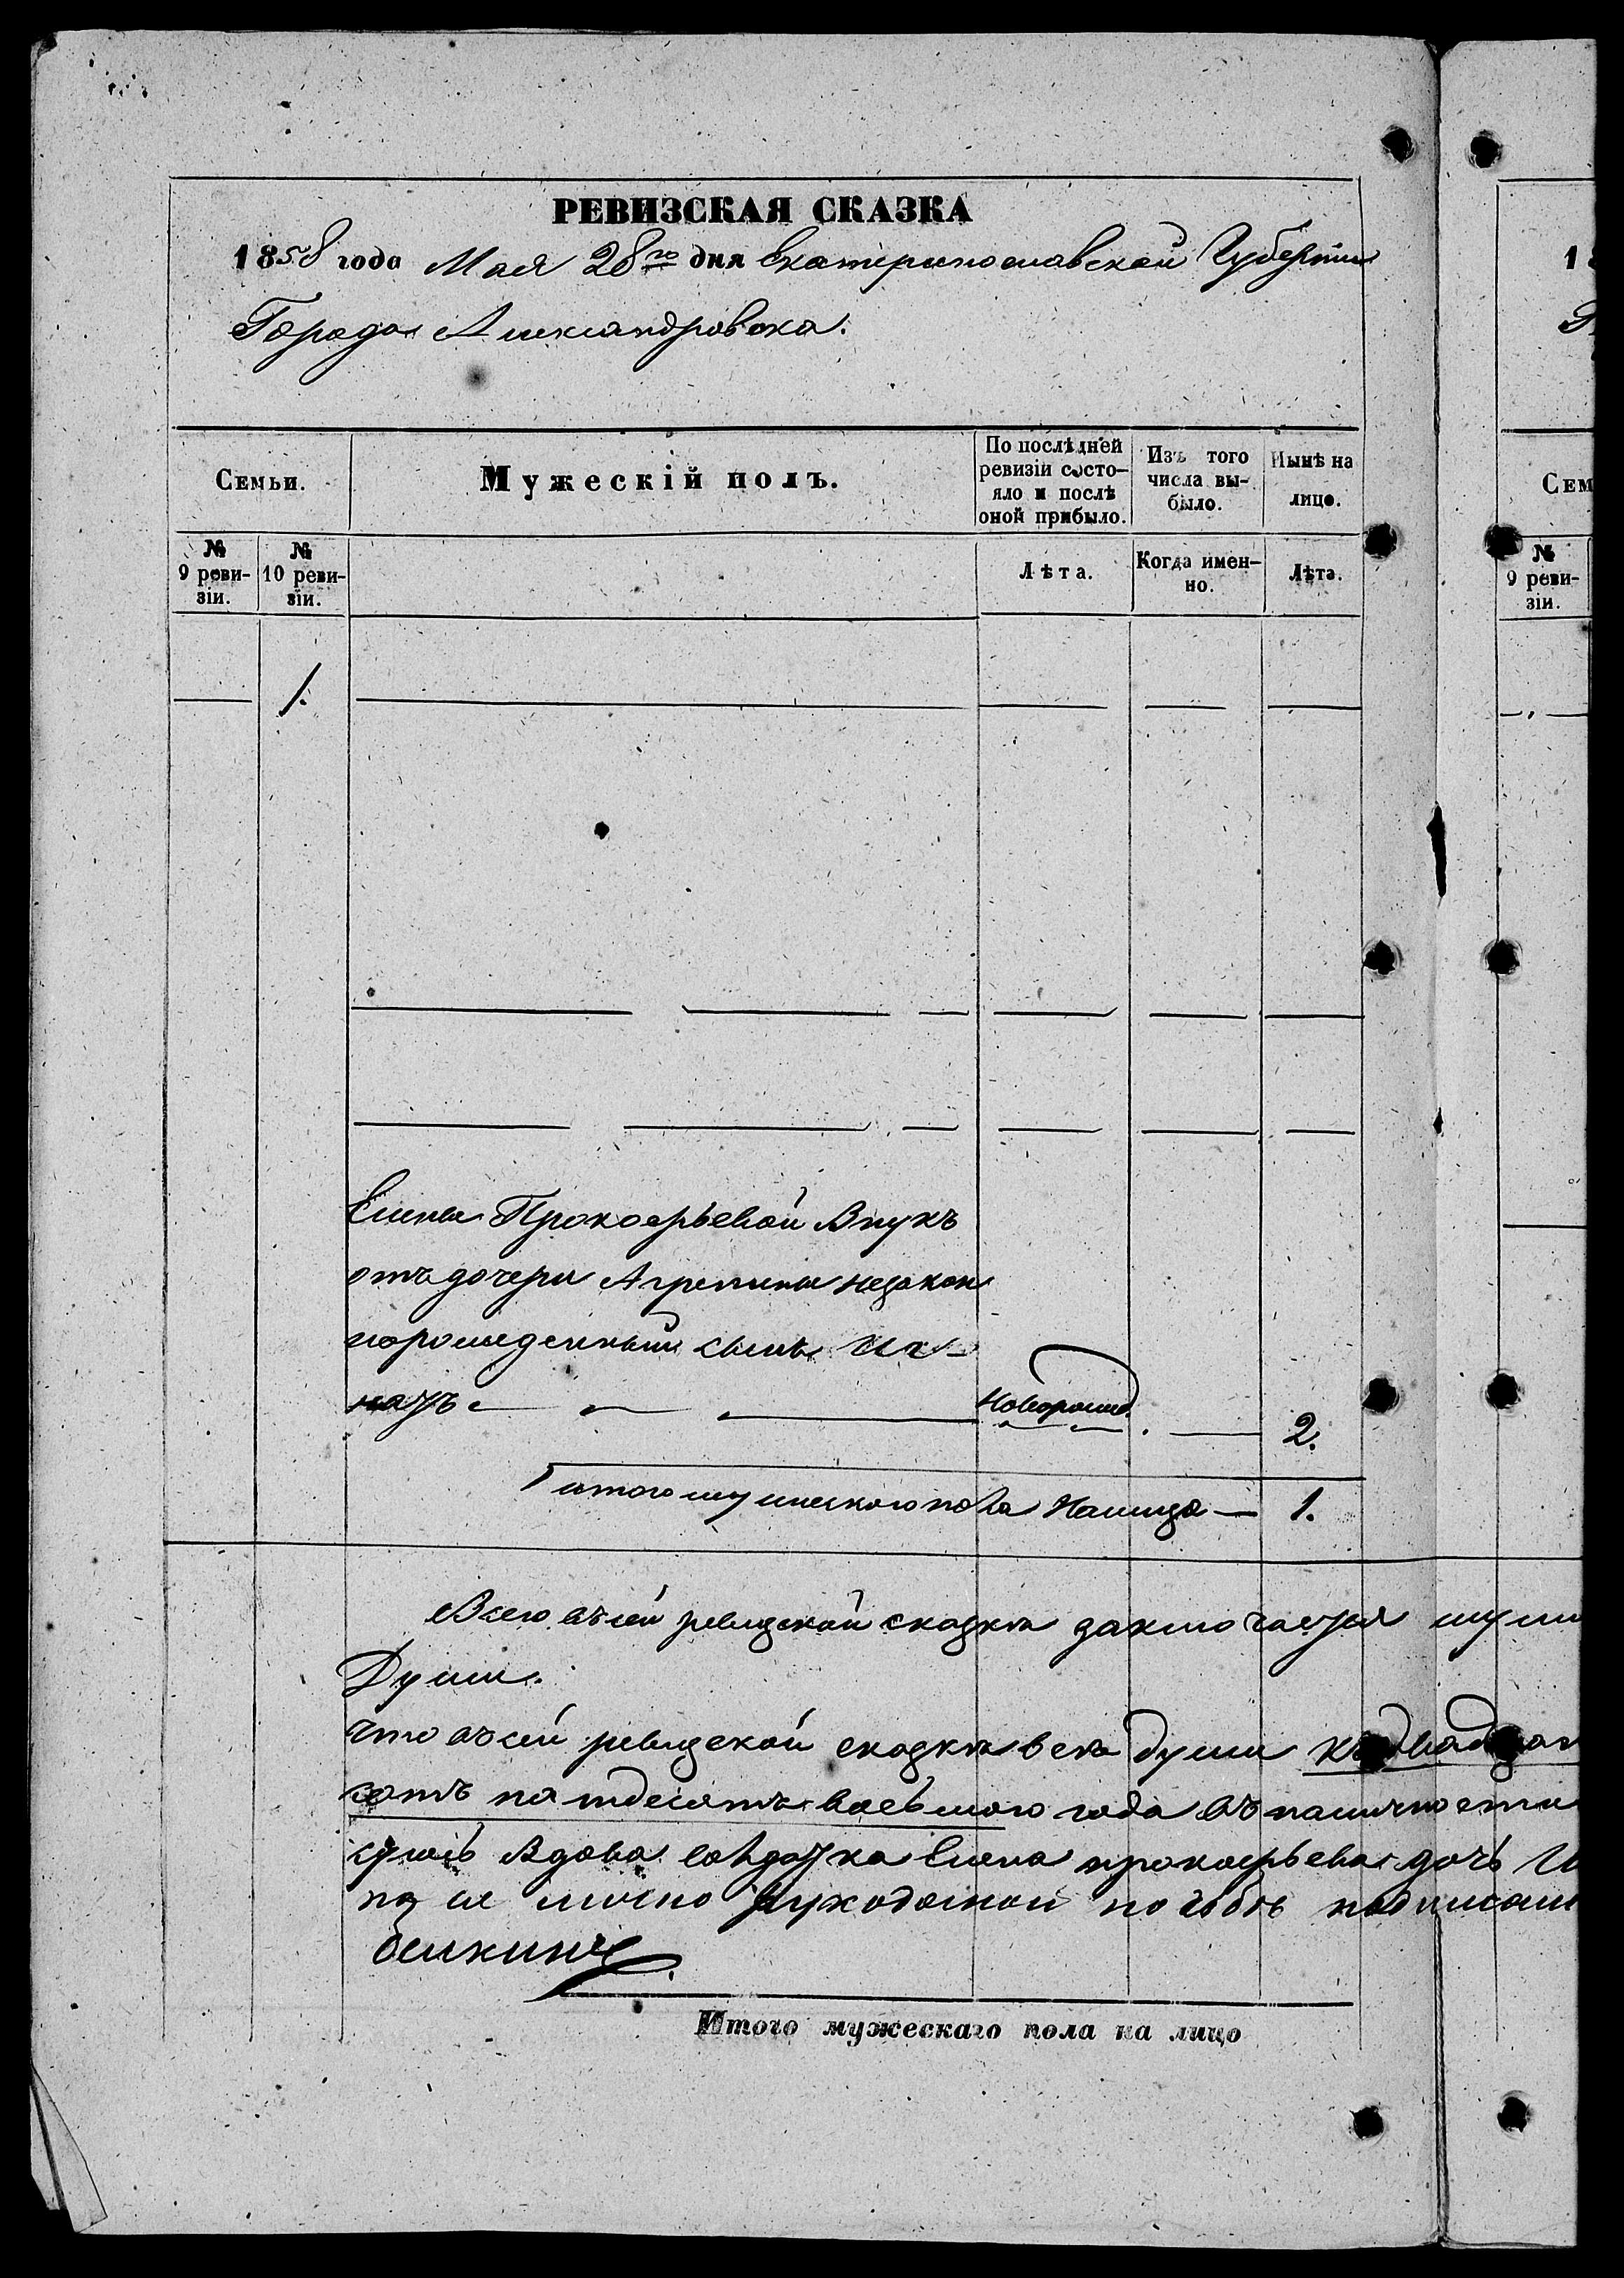 РЕВИЗСКАЯ СКАЗКА
1858 года Мая 28го дня Екатеринославской Губернии
Города Александровска.
Семьи.
Мужескій полъ.
По послѣдней ревизіи состо-
яло и послѣ
оной прибыло.
Изъ того
числа вы-
было.
Нынѣ на
лицо.
№
9 реви-
зіи.
№
10 реви-
зіи.
Лѣта.
Когда имен-
но.
Лѣта.
1.
Елены Прокофьевой Внукъ
отъ дочери Агрепины незакон
норожденный сынъ Иг-
натъ
Новорожд. 2.
итого мужескаго пола Налицо — 1.
Всего въ сей ревизской сказкѣ заключается
Души.
Что въ сей ревизской сказкѣ всѣ души
сотъ пятдесятъ восьмого года въ наличности
Вдова солдатка Елена прокофьева дочь
лично
Итого мужескаго пола на лицо
18
Сем
№
9 реви-
зіи.